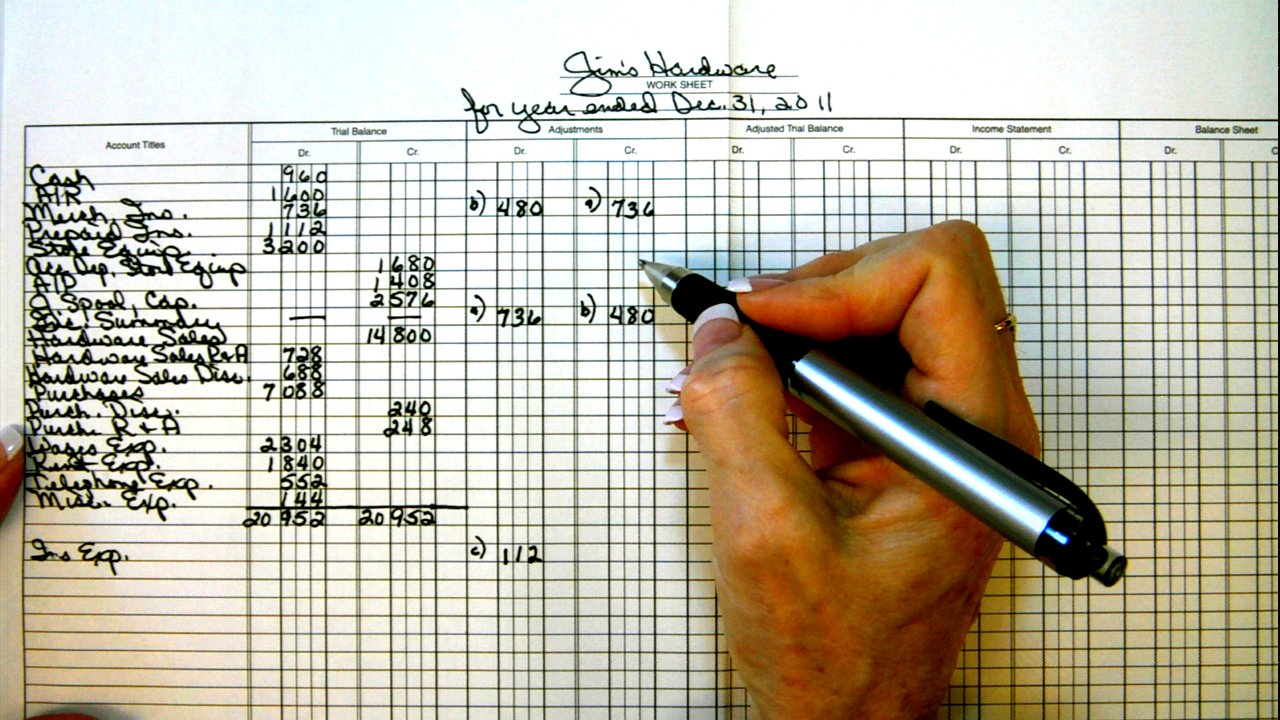 Jim's Hardware
WORK SHEET
for year ended Dec. 31, 2011
Account Titles Trial Balance Adjustments Adjusted Trial Balance Income Statement Balance Sheet
Dr. Cr. Dr. Cr. Dr. Cr. Dr. Cr. Dr. C
Cash 960
A/R 1600
Merch. Inv. 736 b) 480 a) 736
Prepaid Ins. 1112
Store Equip. 3200
Acc. Dep. Store Equip 1680
A/P 1408
J. Spool, Cap. 2576
Inc. Summary — — a) 736 b) 480
Hardware Sales 14800
Hardware Sales R&A 728
Hardware Sales Disc. 688
Purchases 7088
Purch. Disc. 240
Purch. R & A 248
Wages Exp. 2304
Rent Exp. 1840
Telephone Exp. 552
Misc. Exp. 144
20952 20952
Ins Exp. c) 112